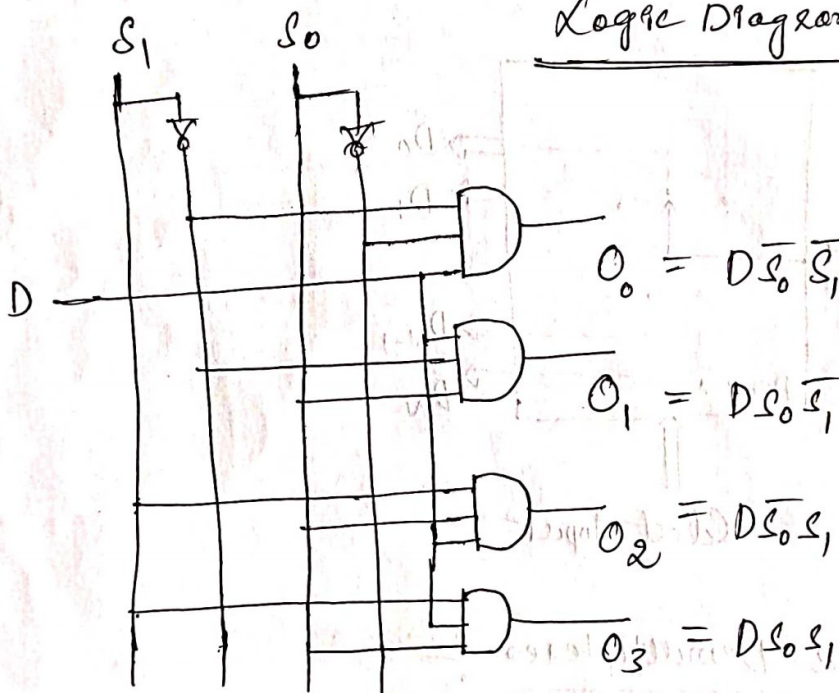 Logic Diagram
S₁ S₀
D
O₀ = D S̅₀ S̅₁
O₁ = D S₀ S̅₁
O₂ = D S̅₀ S₁
O₃ = D S₀ S₁